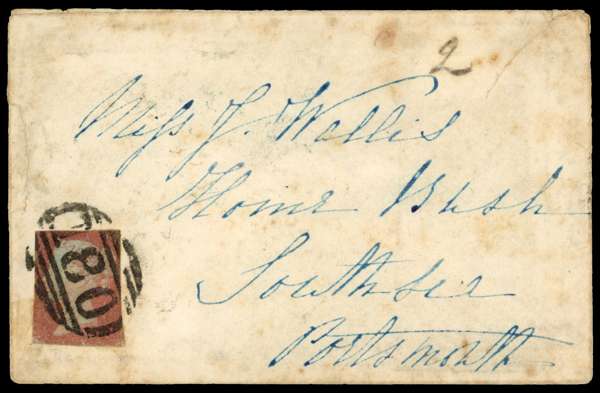 2
Miss J. Wallis
Home Bush
Southsea
Portsmouth